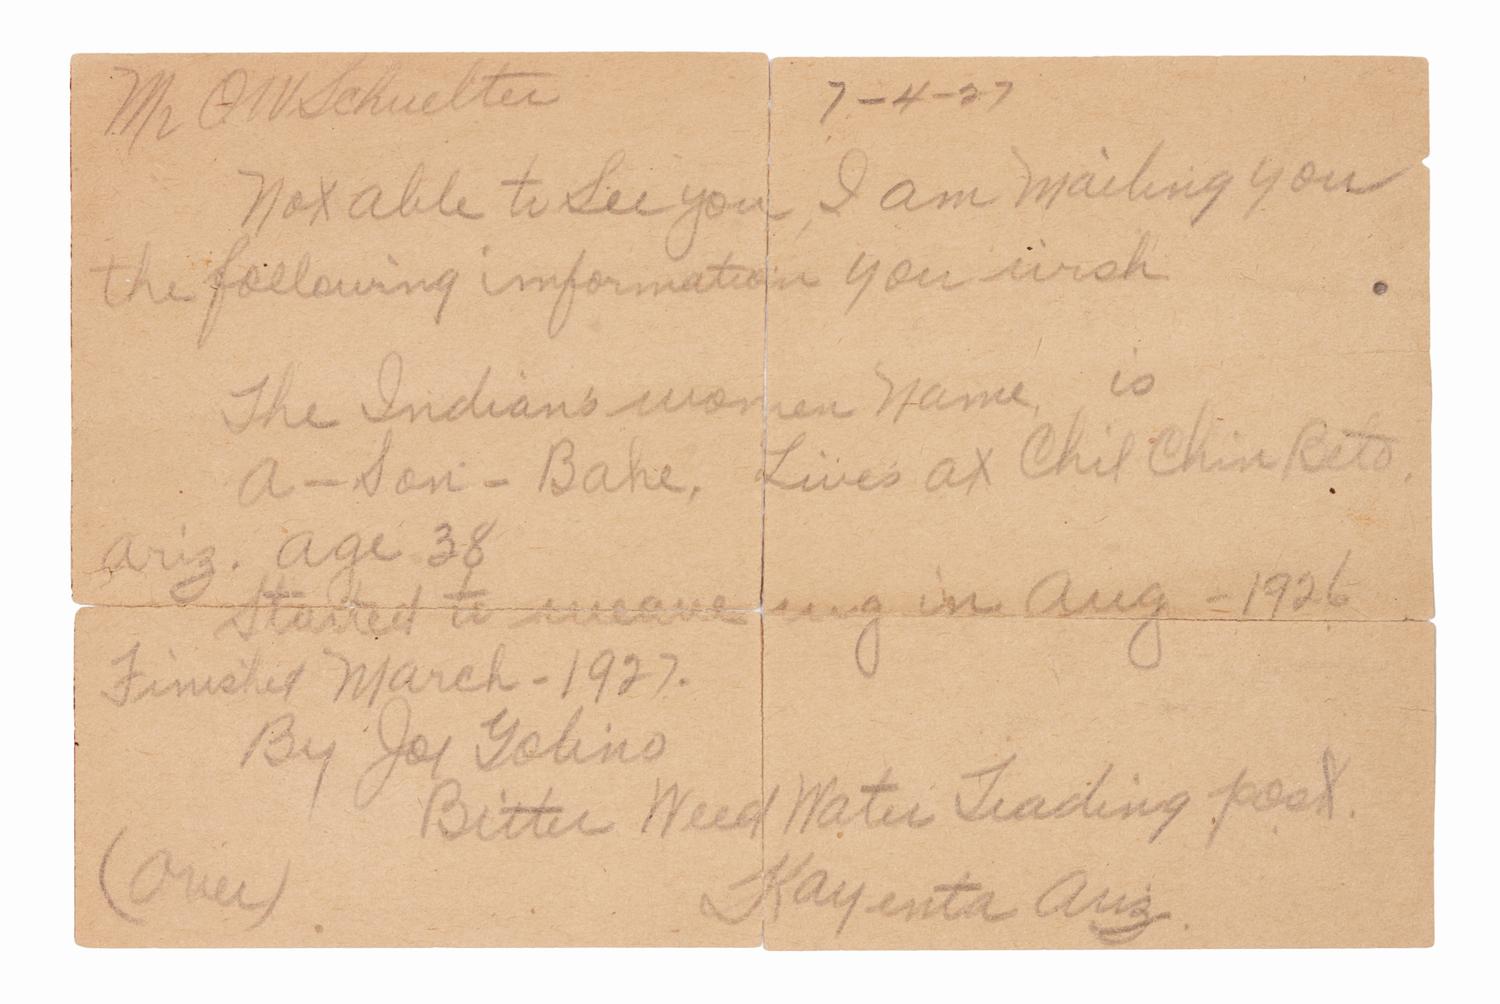 Mr O W Schuelter 7-4-27
Not able to See you, I am Mailing you
the following information you wish
The Indians women Name, is
A-Son-Bahe. Lives at Chil Chin Beto.
Ariz. age 38
Started to weave rug in Aug - 1926
Finished March - 1927.
By Joe
Bitter Weed Water Trading post.
Kayenta Ariz.
(Over)